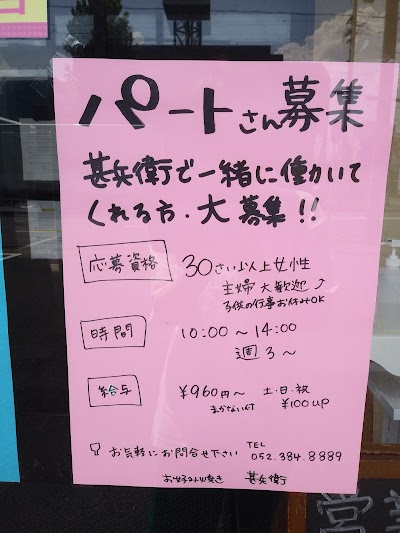 パートさん募集
甚兵衛で一緒に働かいて
くれる方・大募集!!
応募資格 30さい以上女性
主婦大歓迎♪
子供の行事お休みOK
時間 10:00〜14:00
週3〜
給与 ¥960円〜 土・日・祝
まかない付 ¥100UP
お気軽にお問合せ下さい TEL
052.384.8889
お好み焼き 甚兵衛
営業